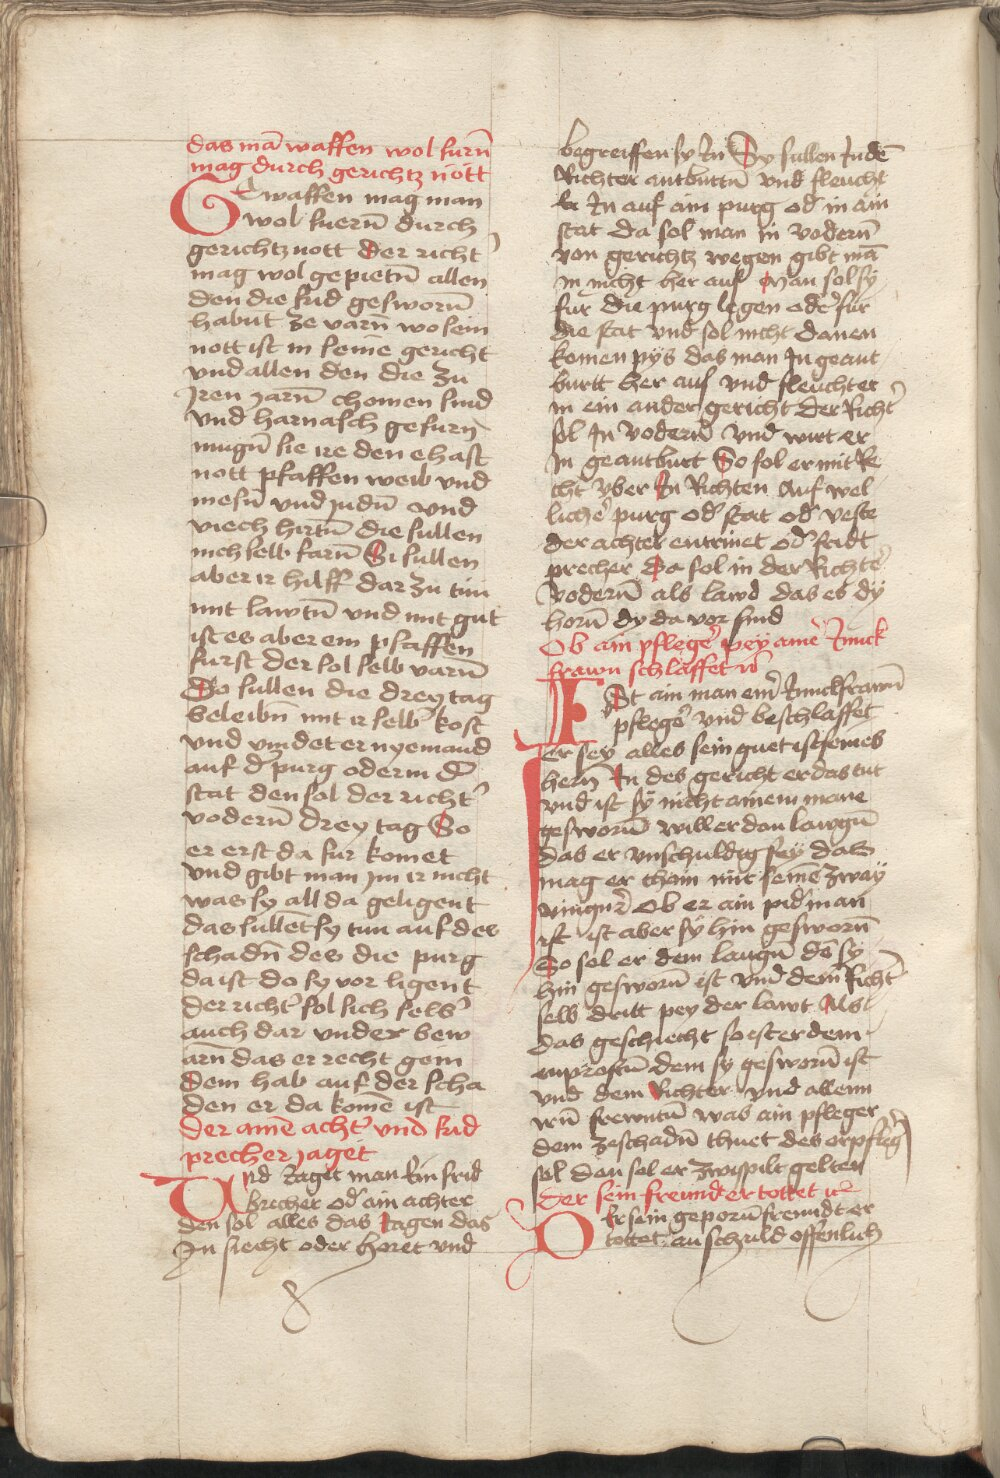 das mā waffen wol furn̄
mag durch gerichtz nott
Gewaffen mag man
wol fuern̄ durch
gerichtz nott der richt̓
mag wol gepietn̄ allen
den die frid gesworn̄
habut ze varn̄ wo sein
nott ist in seine gericht
vnd allen den die zu
Jren jarn̄ chomen sind
vnd harnasch gefurn̄
mugn̄ sie irre den ehaft
nott pfaffen weib vnd
mesn̄ vnd judn̄ vnd
viech hirtn̄ die sullen
nich selb farn̄ Si sullen
aber ir hilff dar zu tun
mit lawtn̄ vnd mit gut
ist es aber ein pfaffen
furst der sol selb varn̄
So sullen die drey tag
beleibn̄ mit ir selb̓ kost
vnd vindet er nyemand
auf d̓ purg oder in d̓
stat den sol der richt̓
vodern̄ drey tag So
er erst da fur komet
vnd gibt man jm ir nicht
was sy all da geligent
das sullēt sy tun auf des
schadn̄ des die purg
da ist do sy vor ligent
der richt̓ sol sich selb̓
auch dar vnder bew
arn̄ das er recht gem
dem hab auf der scha
den er da komē ist
der ainē acht̓ vnd frid
precher jaget
Vnd Jaget man Ein frid
brecher od̓ ain achter
den sol alles das Jagen das
Jn siecht oder horet vnd
begreiffen sy Jn Sy sullen Jn dē
Richter antburttn̄ vnd fleucht
er Jn auf ain purg od̓ in ain
stat da sol man in vodern̄
von gerichtz wegen gibt mā
in nicht her auf Man sol sy
fur die purg legen oder fur
die stat vnd sol nicht danen
komen pys das man Jn geant
burtt her auf vnd fleucht er
in ein ander gericht der Richt̓
sol Jn vodern̄ vnd wirt er
Jn geantburt So sol er mit Re
cht vber Jn Richten Auf wel
lichē purg od̓ stat od̓ veste
der achter entrinet od̓ fridt
precher Da sol in der Richte̓
vodern̄ als lawd das es dy
horn̄ dy da vor sind
Ob ain pflege̓ pey ainē Junck
frawn schlaffet ic̓
Ist ain man ein̓ Junckfrawn̄
pflege̓ vnd beschlaffet
er sey alles sein guet ist seines
hern̄ Jn des gericht er das tut
vnd ist sy nicht ainem mane
gesworn̄ will er dan lawgn̄
das er vnschuldig sey das
mag er thain mit seinē zway
vingn̄ ob er ain pid̓ man
ist ist aber sy hin gesworn̄
So sol er dem laugn̄ dē sy
hin gesworn̄ ist vnd dem Richt̓
selb dritt pey der lawt Als
das geschiecht so ist er dem
enprostn̄ dem sy gesworn̄ ist
vnd dem Richter vnd allenn
irn̄ frewntn̄ was ain pfleger
dem ze schadn̄ thuet des er pfleg̓
sol den sol er zwispilt gelten
Der sein freund er tottet ic̓
Der sein geporn̄ freundt er
tottet an schuld offenlich